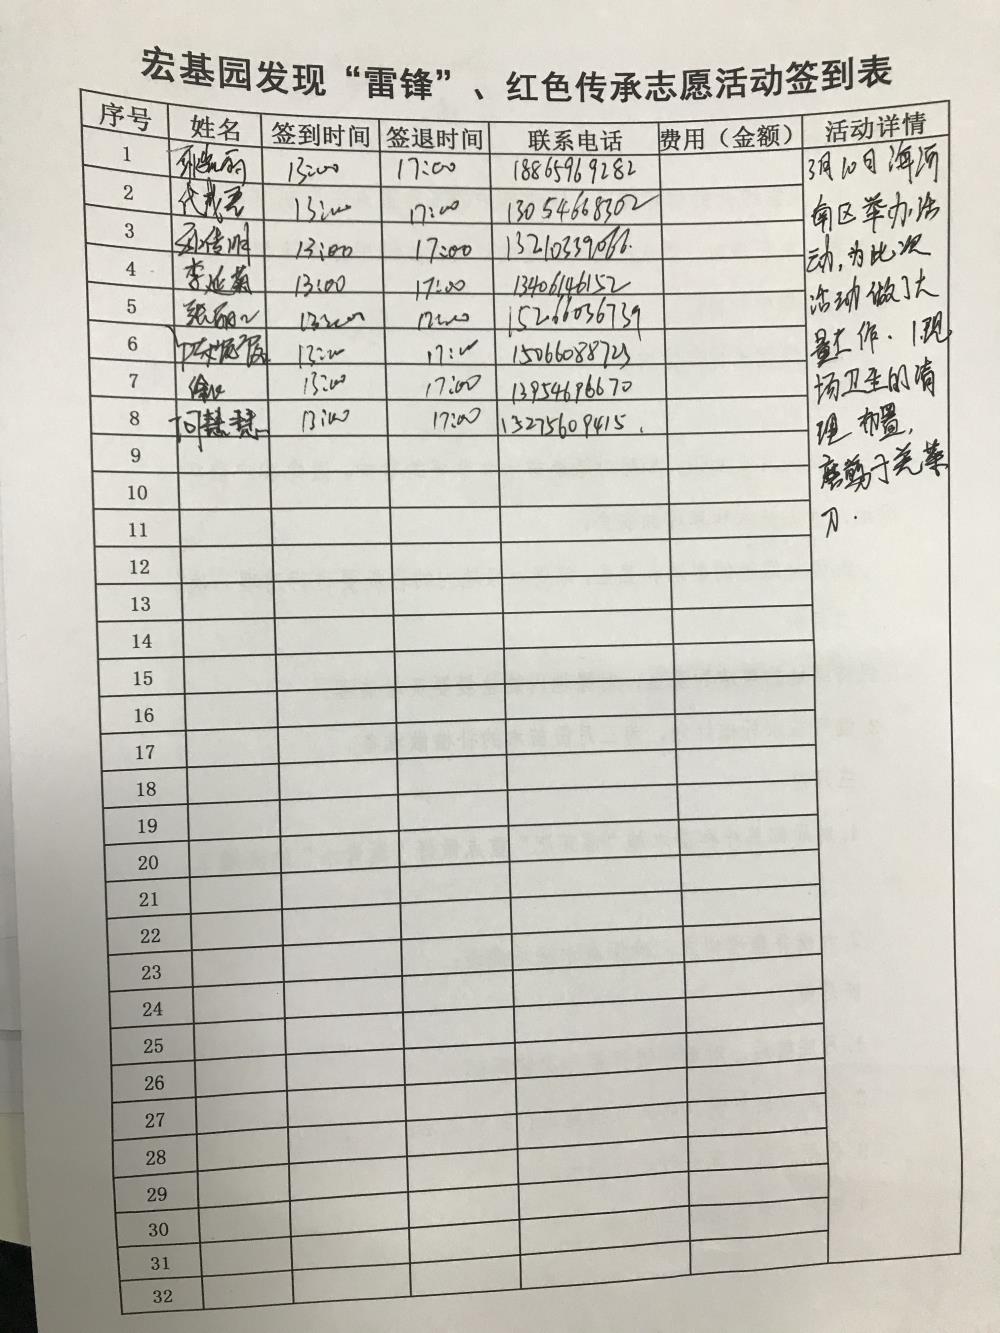 宏基园发现“雷锋”、红色传承志愿活动签到表
序号 姓名 签到时间 签退时间 联系电话 费用（金额） 活动详情
1 13:00 17:00 18865969282
2 13:00 17:00 13054668302
3 孙传明 13:00 17:00 13210339066.
4 李延菊 13:00 17:00 13406146152
5 张丽 13:00 17:00 15266036739
6 13:00 17:00 15066088723
7 徐 13:00 17:00 13954696670
8 何慧慧 13:00 17:00 13275609415.
9
10
11
12
13
14
15
16
17
18
19
20
21
22
23
24
25
26
27
28
29
30
31
32
3月10日海河
南区举办活
动，为此次
活动做了大
量工作. 1.现
场卫生的清
理 布置，
磨剪子羌菜
刀.